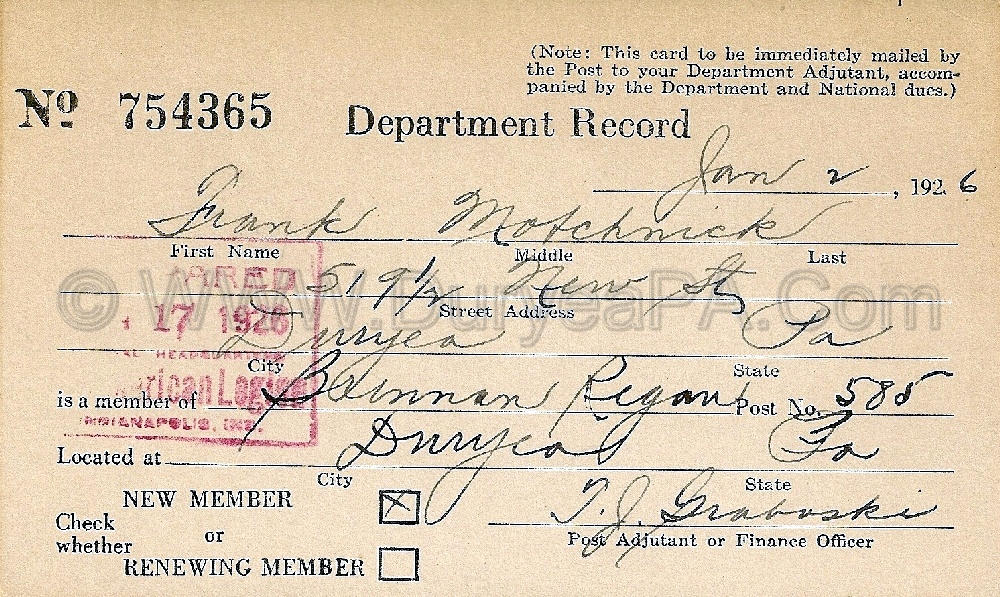 (Note: This card to be immediately mailed by
the Post to your Department Adjutant, accom-
panied by the Department and National dues.)
No 754365
Department Record
Jan 2, 1926
Frank Motchnick
First Name Middle Last
519 1/2 New St,
© WWW.DuryeaPA.Com
Street Address
17 1926
Duryea Pa
HEADQUARTERS
City State
American Legion
is a member of Brennan Regan Post No. 585
INDIANAPOLIS, IND.
Located at Duryea Pa
City State
NEW MEMBER X
Check
whether
or
RENEWING MEMBER
T. J. Graboski
Post Adjutant or Finance Officer